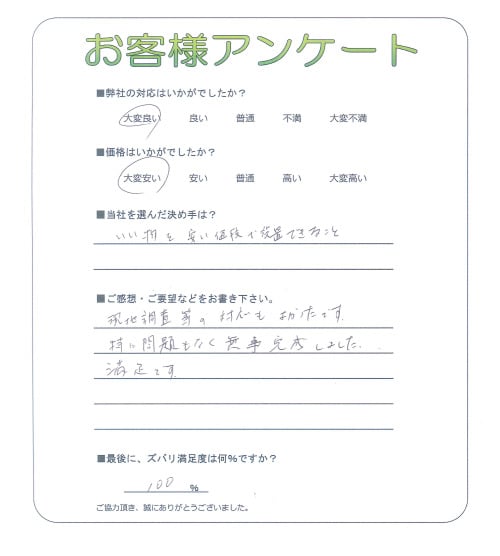 お客様アンケート
■弊社の対応はいかがでしたか？
大変良い 良い 普通 不満 大変不満
■価格はいかがでしたか？
大変安い 安い 普通 高い 大変高い
■当社を選んだ決め手は？
いい物を安い値段で設置できること
■ご感想・ご要望などをお書き下さい。
現地調査等の対応もよかったです。
特に問題もなく無事完成しました。
満足です。
■最後に、ズバリ満足度は何%ですか？
100 %
ご協力頂き、誠にありがとうございました。